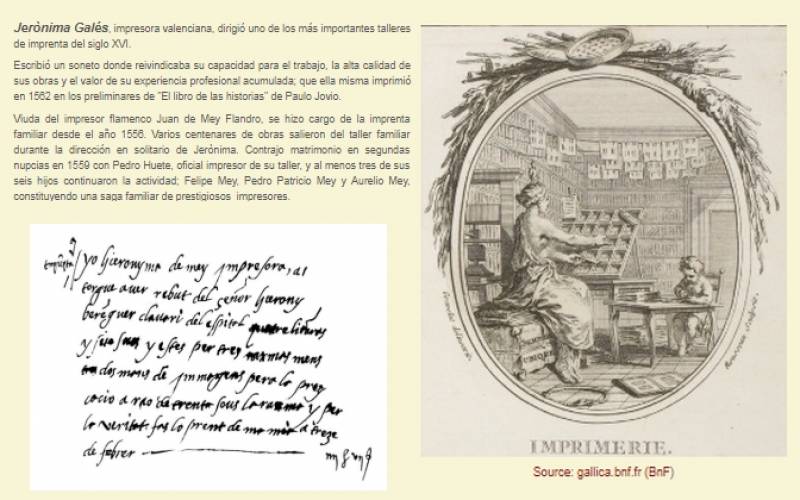 Jerònima Galés, impresora valenciana, dirigió uno de los más importantes talleres
de imprenta del siglo XVI.
Escribió un soneto donde reivindicaba su capacidad para el trabajo, la alta calidad de
sus obras y el valor de su experiencia profesional acumulada; que ella misma imprimió
en 1562 en los preliminares de "El libro de las historias" de Paulo Jovio.
Viuda del impresor flamenco Juan de Mey Flandro, se hizo cargo de la imprenta
familiar desde el año 1556. Varios centenares de obras salieron del taller familiar
durante la dirección en solitario de Jerónima. Contrajo matrimonio en segundas
nupcias en 1559 con Pedro Huete, oficial impresor de su taller, y al menos tres de sus
seis hijos continuaron la actividad; Felipe Mey, Pedro Patricio Mey y Aurelio Mey,
constituyendo una saga familiar de prestigiosos impresores.
yo hieronyma de mey impresora, a
rebut del señor hierony
del espital
y per tres mans
dos mans de per lo preu
a rao de trenta sous la y per
la veritat fas lo present de ma mia a treze
de febrer
UBIQUE
IMPRIMERIE.
Source: gallica.bnf.fr (BnF)